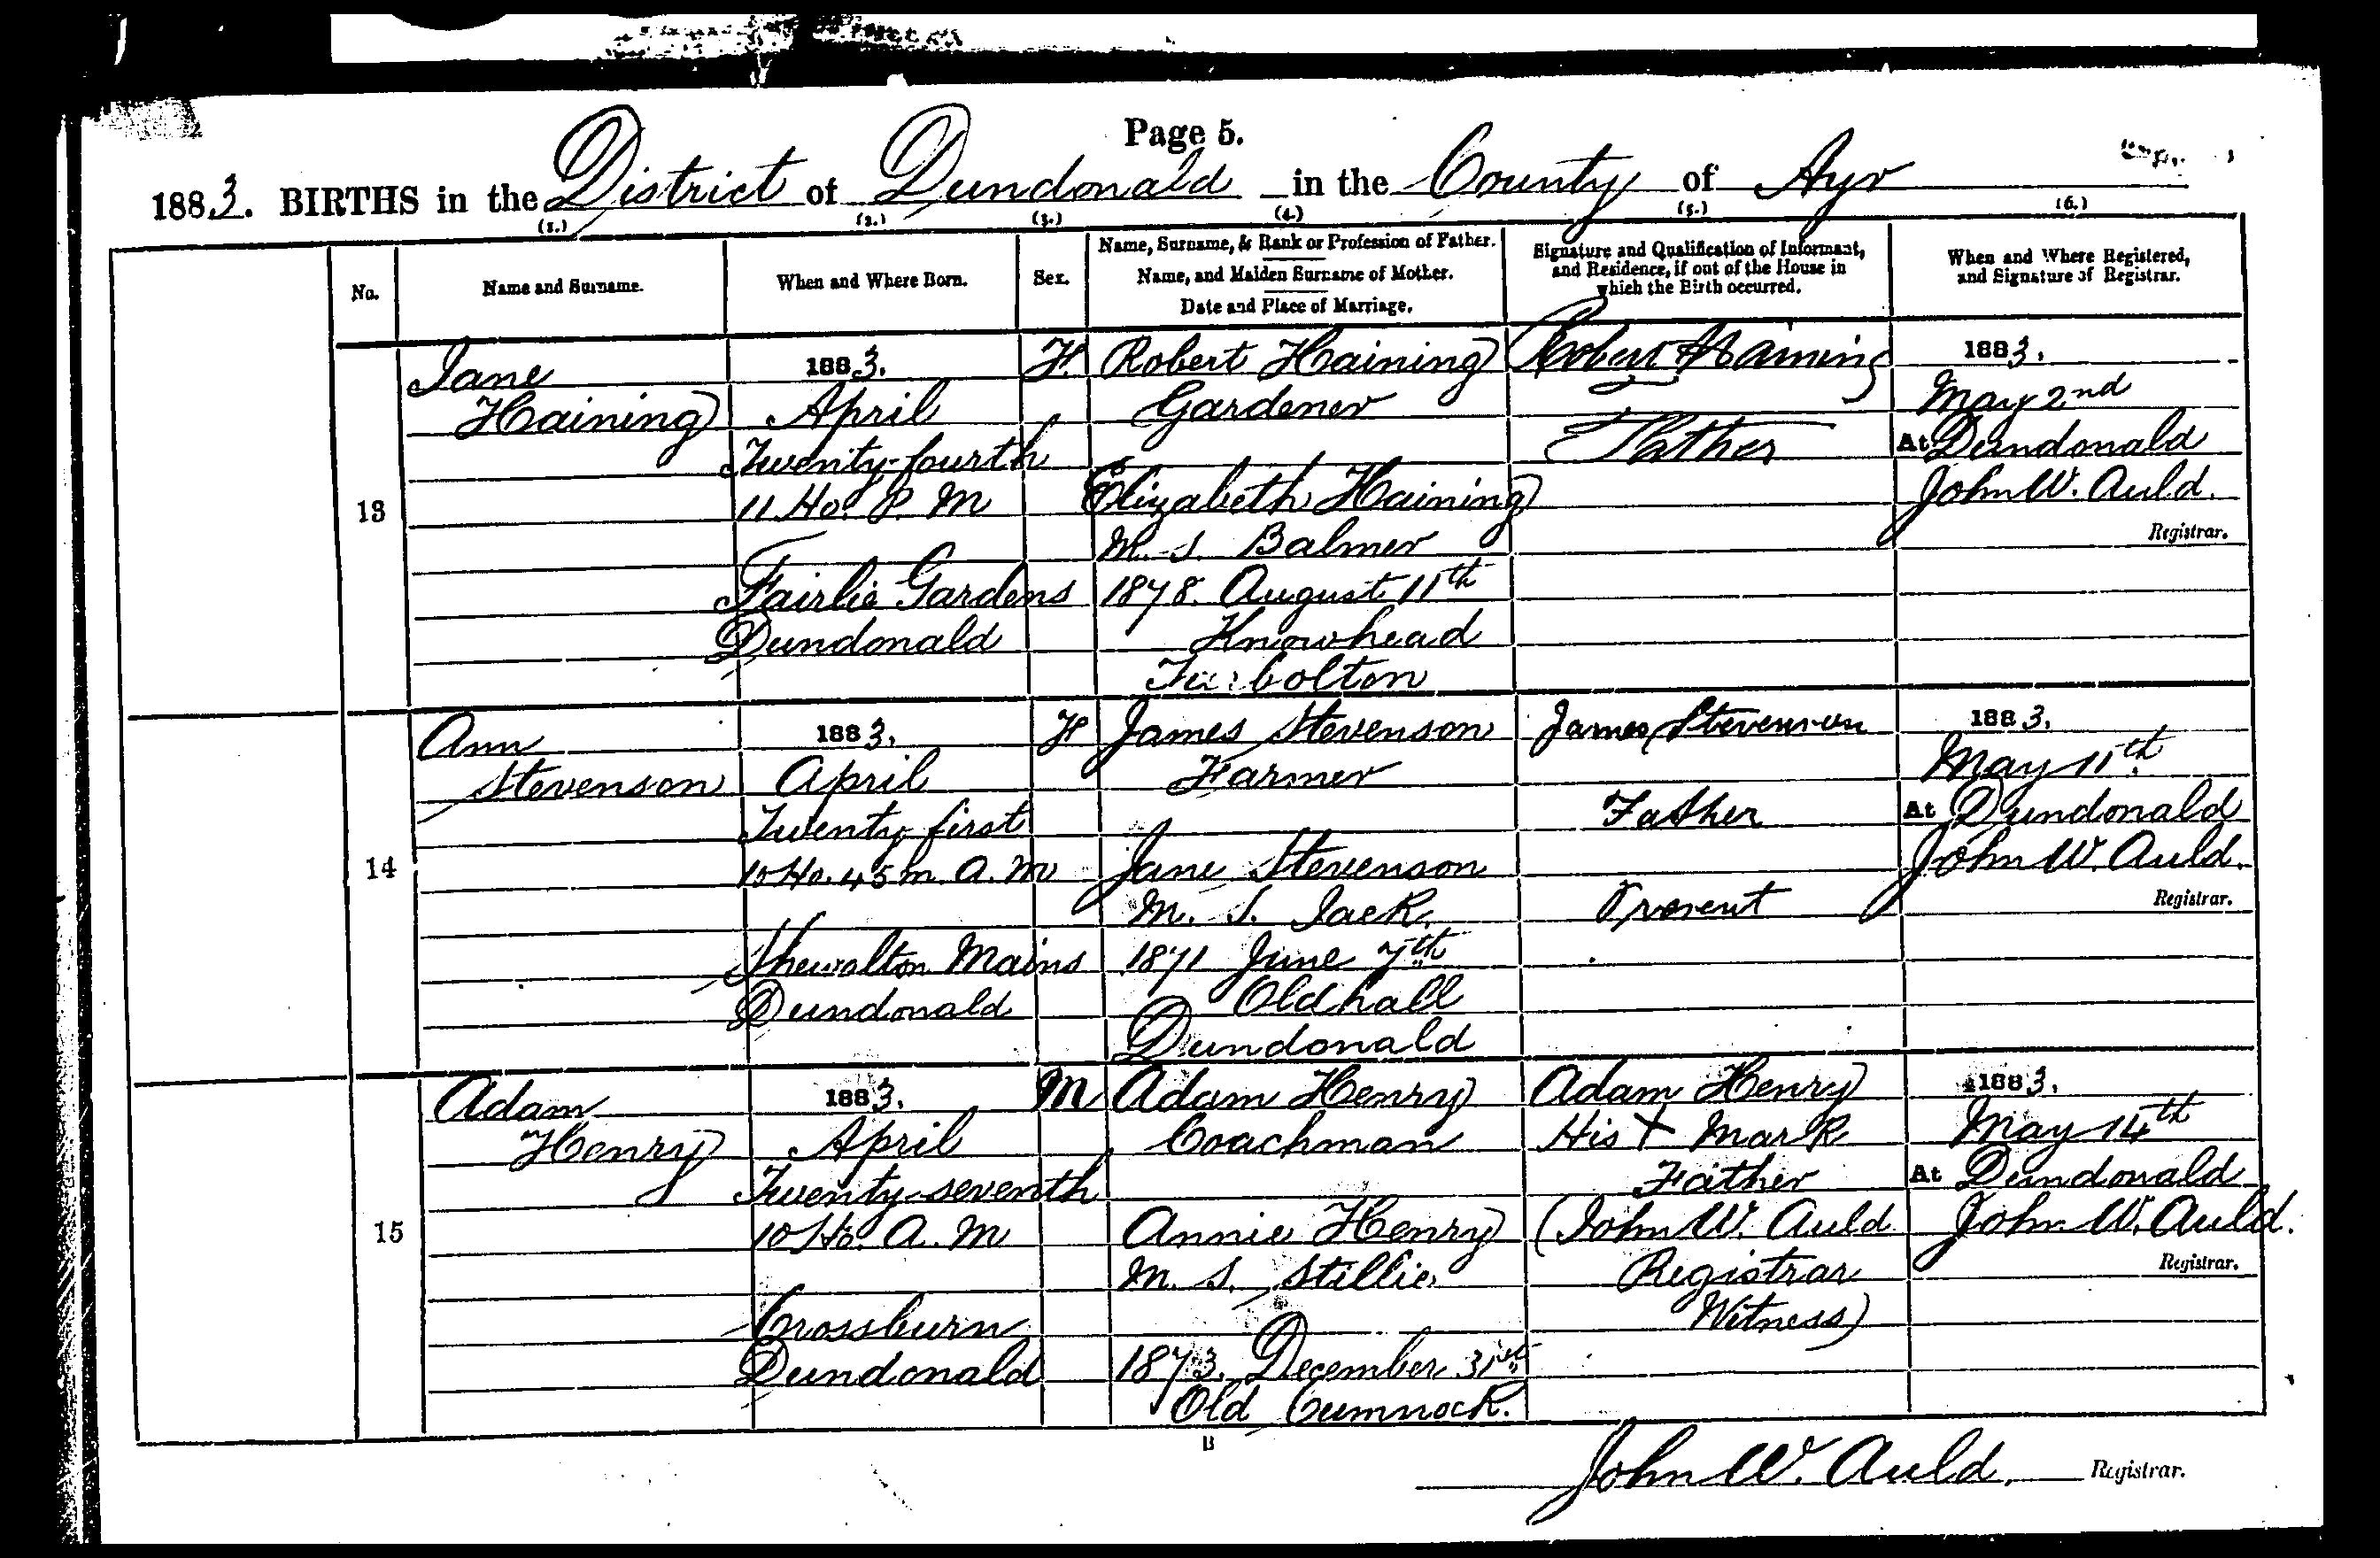 Page 5.
1883. BIRTHS in the District of Dundonald in the County of Ayr
(1.) (2.) (3.) (4.) (5.) (6.)
No.
Name and Surname.
When and Where Born.
Sex.
Name, Surname, & Rank or Profession of Father.
Name, and Maiden Surname of Mother.
Date and Place of Marriage.
Signature and Qualification of Informant,
and Residence, if out of the House in
which the Birth occurred.
When and Where Registered,
and Signature of Registrar.
13
Jane
Haining
1883.
April
Twenty-fourth
11 Ho. P. M
Fairlie Gardens
Dundonald
F.
Robert Haining
Gardener
Elizabeth Haining
M. S. Balmer
1878. August 11th
Knowhead
Tarbolton
Robert Haining
Father
1883.
May 2nd
At Dundonald
John W. Auld.
Registrar.
14
Ann
Stevenson
1883.
April
Twenty first
10 Ho. 45 m. A. M
Shewalton Mains
Dundonald
F
James Stevenson
Farmer
Jane Stevenson
M. S. Jack.
1871 June 7th
Oldhall
Dundonald
James Stevenson
Father
Present
1883.
May 11th
At Dundonald
John W. Auld.
Registrar.
15
Adam
Henry
1883.
April
Twenty-seventh
10 Ho. A. M
Crossburn
Dundonald
M
Adam Henry
Coachman
Annie Henry
M. S. Stillie
1873. December 31st
Old Cumnock.
Adam Henry
His X Mark
Father
(John W. Auld
Registrar
Witness)
1883.
May 14th
At Dundonald
John W. Auld.
Registrar.
B
John W. Auld. Registrar.